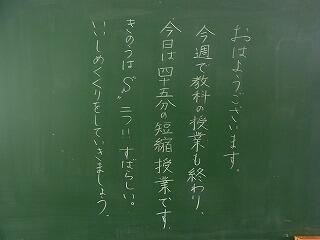 おはようございます。
今週で教科の授業も終わり、
今日は四十五分の短縮授業です。
きのうは“S”二つ!!すばらしい。
いいしめくくりをしていきましょう。